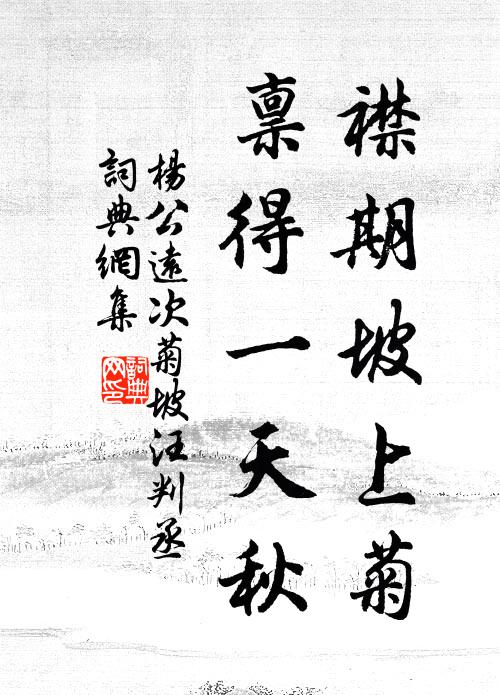 襟期坡上菊
禀得一天秋
楊公遠次菊坡汪判丞
詞典網集
詞典網印